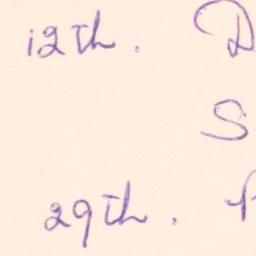 12th. D
S
29th. P